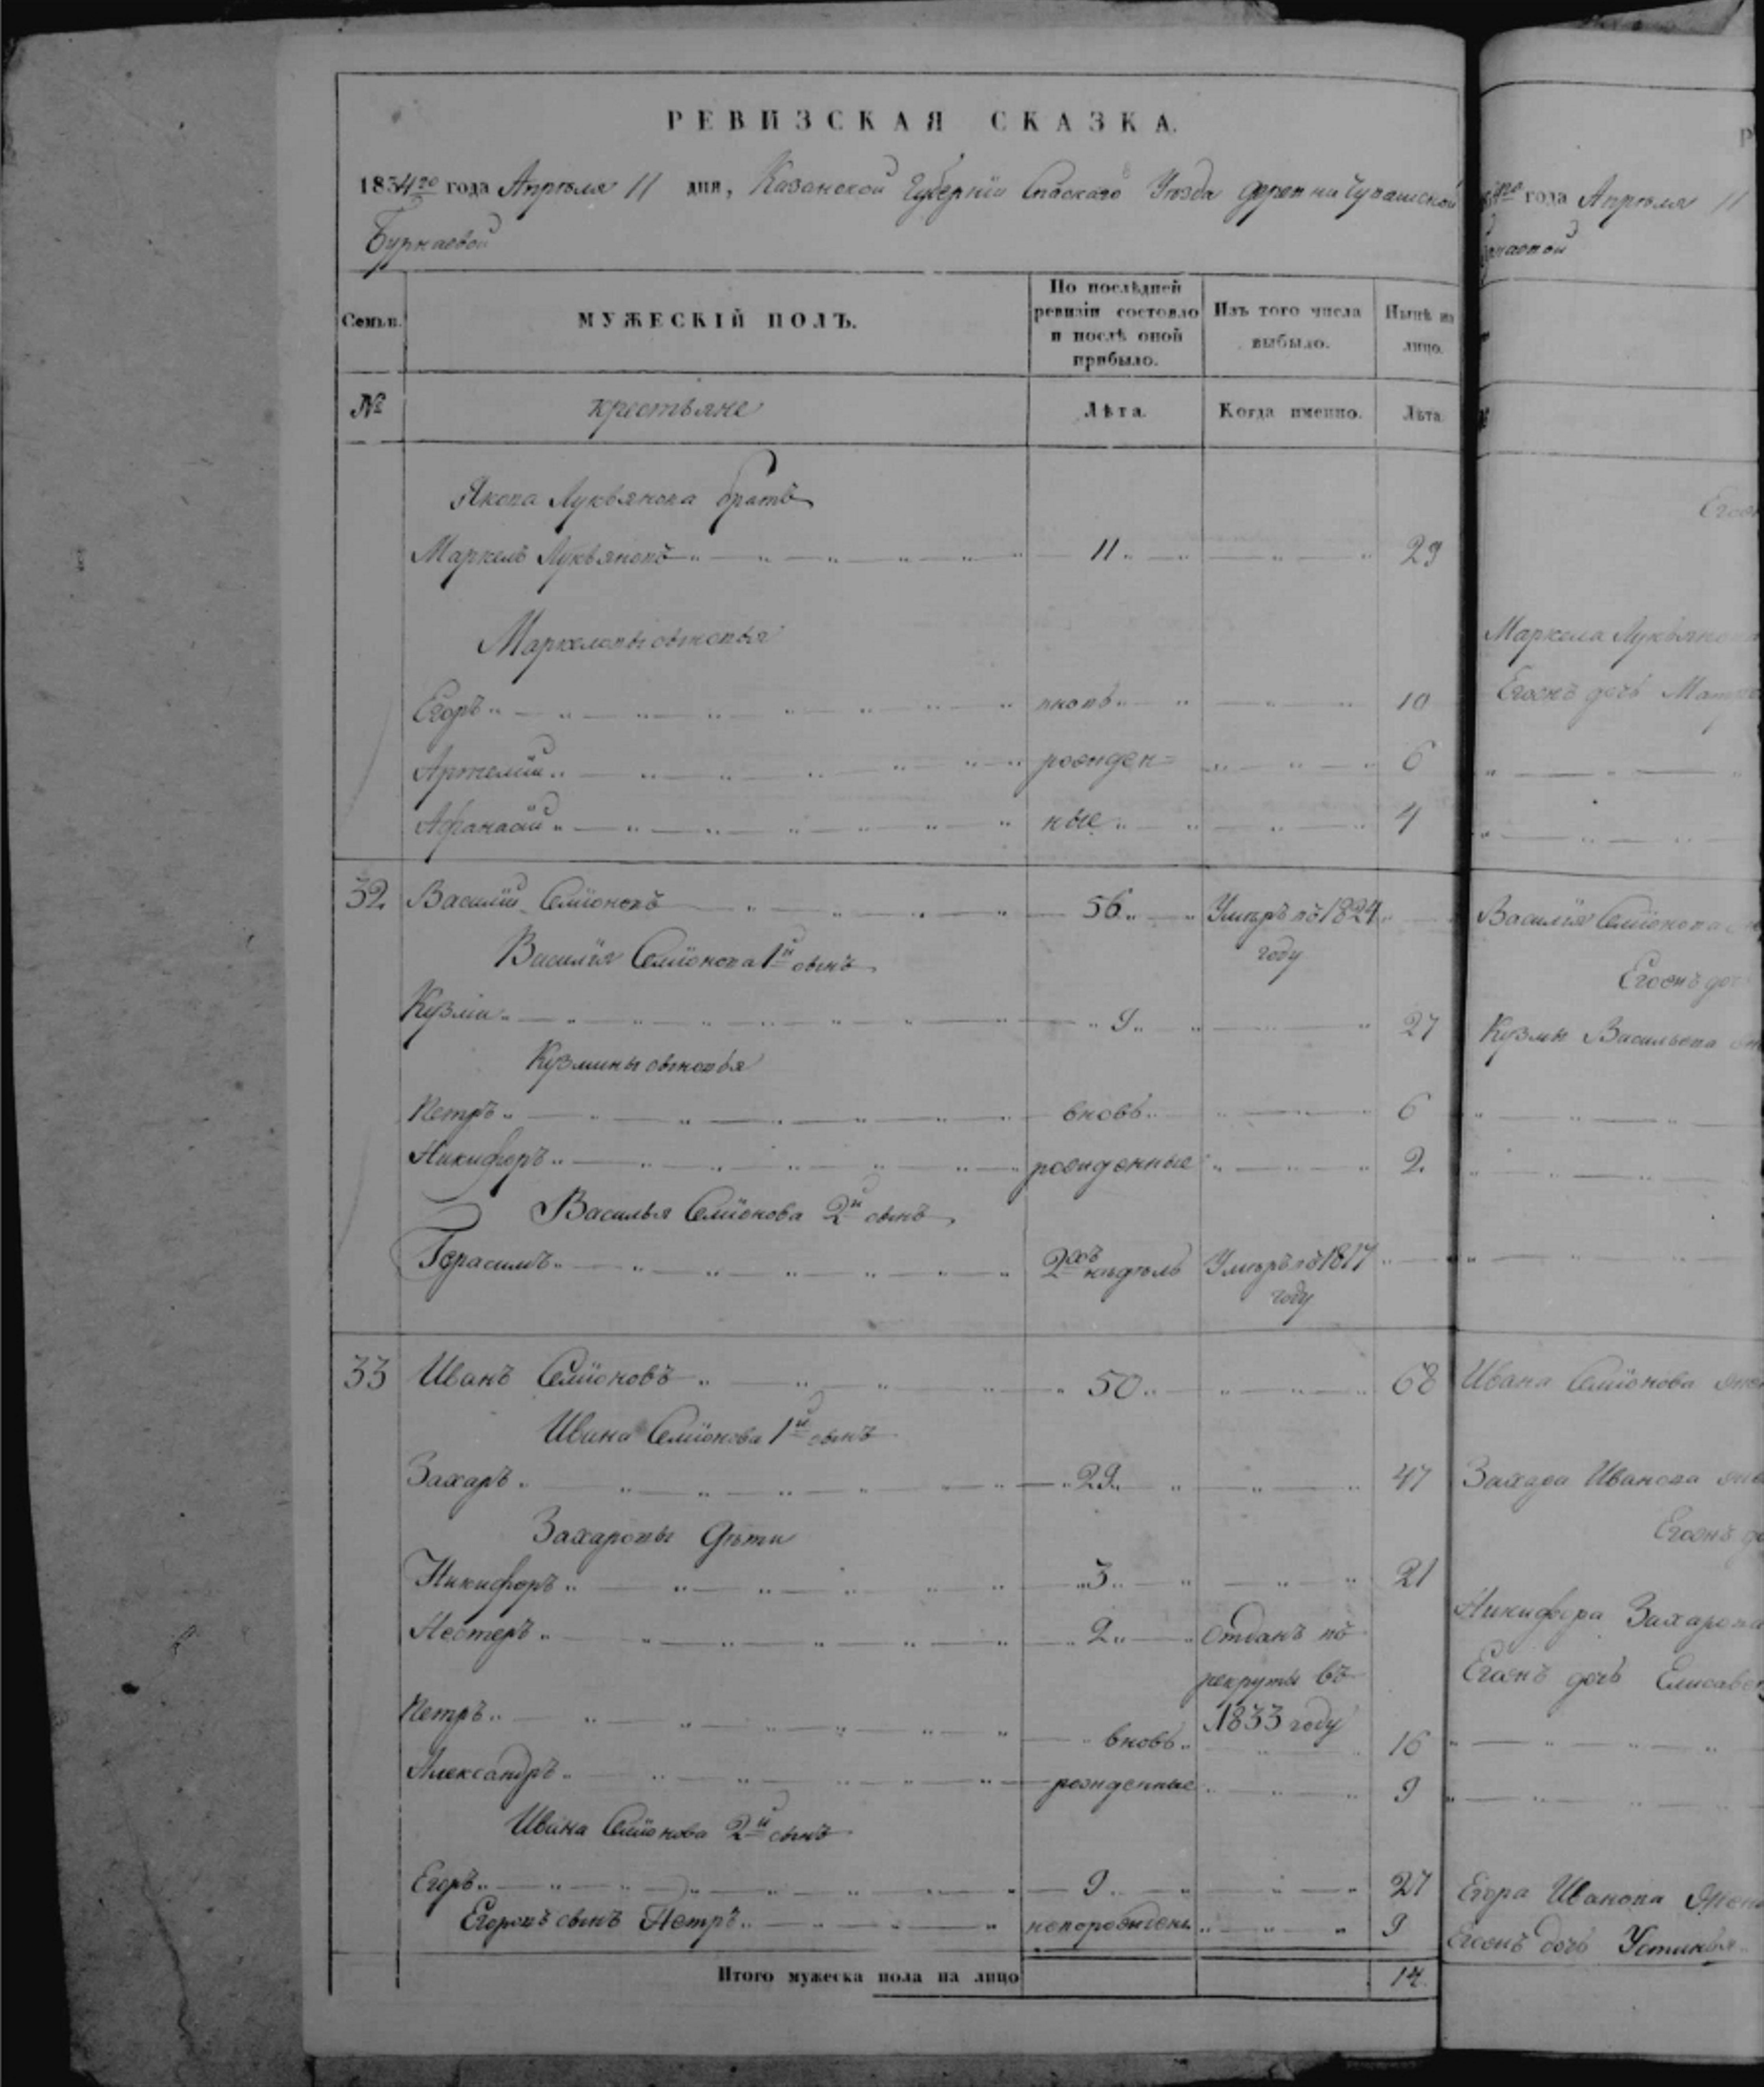 РЕВИЗСКАЯ СКАЗКА.
1834го года Апрѣля 11 дня, Казанской Губерніи Спаскаго Уѣзда деревни Чувашской
Бурнаевой
Семьи. МУЖЕСКІЙ ПОЛЪ. По послѣдней ревизіи состояло и послѣ оной прибыло. Изъ того числа выбыло. Нынѣ на лицо.
№ крестьяне Лѣта. Когда именно. Лѣта.
Якова Лукьянова братъ
Маркелъ Лукьяновъ 11 29
Маркеловы сыновья
Егоръ вновь 10
Артемій рожден= 6
Афанасій ные 4
32. Василій Семіоновъ 56 Умеръ въ 1824
году
Василія Семіонова 1й сынъ
Кузма 9 27
Кузмины сыновья
Петръ вновь 6
Никифоръ рожденные 2
Василья Семіонова 2й сынъ
Герасимъ 2хъ недѣль Умеръ въ 1817
году
33 Иванъ Семіоновъ 50 68
Ивана Семіонова 1й сынъ
Захаръ 29 47
Захаровы дѣти
Никифоръ 3 21
Нестеръ 2 отданъ въ
рекруты въ
1833 году
Петръ вновь 16
Александръ рожденные 9
Ивана Семіонова 2й сынъ
Егоръ 9 27
Егоровъ сынъ Петръ новорожден 9
Итого мужеска пола на лицо 14
года Апрѣля 11
Маркела Лукьянова
Егоенъ дочь
Василія Семіонова
Егоенъ доч
Кузмы Васильева
Ивана Семіонова
Захара Иванова
Егоенъ
Никифора Захарова
Егоенъ дочь Елисавет
Егора Иванова жена
Егоенъ дочь Устинья